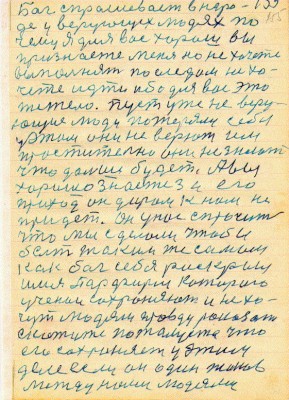 Бог спрашивает в наро- 155
де у верующих людях по
чему я для вас хорош вы
признаете меня но не хочете
выполнят последом не хо-
чите идти ибо для вас это
тяжело. Пуст уже не веру-
ющие люди потеряли себя
у этом они не верют им
простително они не знают
что дальши будет. А вы
хорошо знаете з и его
приход он даром к нам не
придет. Он у нас спросит
что мы сделали чтобы
быт таким же самым
как бог себя раскрыл
имя Парфирий которого
учении сохраняют и не хо-
чут людям правду показат
скажите пожалуста что
его сохраняет у этим
деле если он один живой
между нами людями